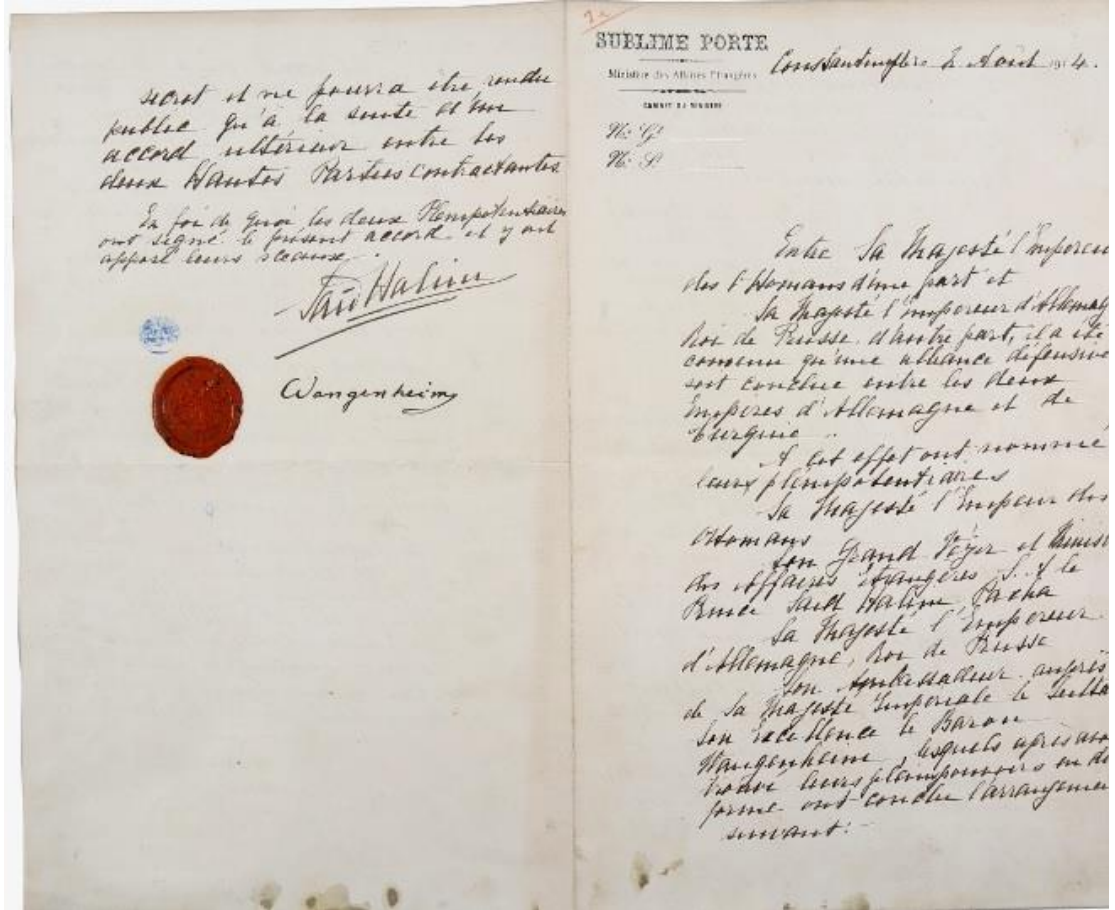 secret et ne pourra être rendu
public qu'à la suite d'un
accord ultérieur entre les
deux Hautes Parties contractantes
En foi de quoi les deux Plenipotentiaires
ont signé le présent accord et y ont
apposé leurs sceaux.
Saïd Halim
Wangenheim
SUBLIME PORTE
Ministère des Affaires Etrangères
CABINET DU MINISTRE
Constantinople 2 Août 1914.
No. Gl
No. Sl
Entre Sa Majesté l'Empereur
des Ottomans d'une part et
Sa Majesté l'empereur d'Allemag
Roi de Prusse d'autre part, il a été
convenu qu'une alliance défensive
soit conclue entre les deux
Empires d'Allemagne et de
Turquie.
A cet effet ont nommé
leurs plénipotentiaires
Sa Majesté l'Empereur des
Ottomans
Son Grand Vézir et Minist
des Affaires étrangères S. A le
Prince Saïd Halim Pacha
Sa Majesté l'Empereur
d'Allemagne, Roi de Prusse
Son Ambassadeur auprès
de Sa Majesté Impériale le Sulta
Son Excellence le Baron
Wangenheim, lesquels après avo
trouvé leurs pleinpouvoirs en
forme ont conclu l'arrangemen
suivant: